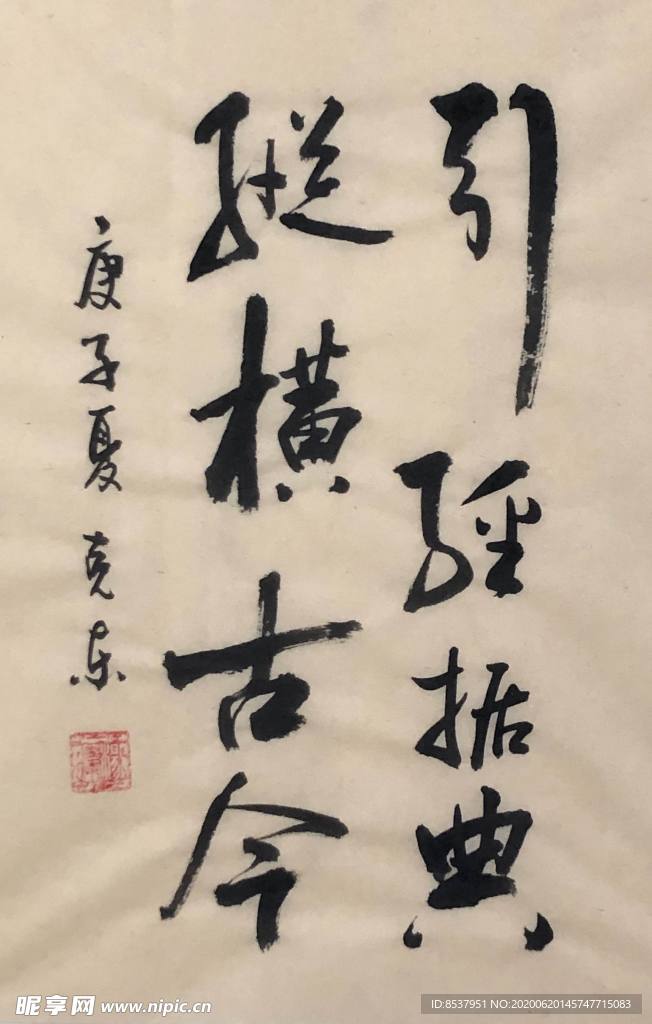 引經据典
縱橫古今
庚子夏克东
昵享网 www.nipic.cn
ID:8537951 NO:20200620145747715083